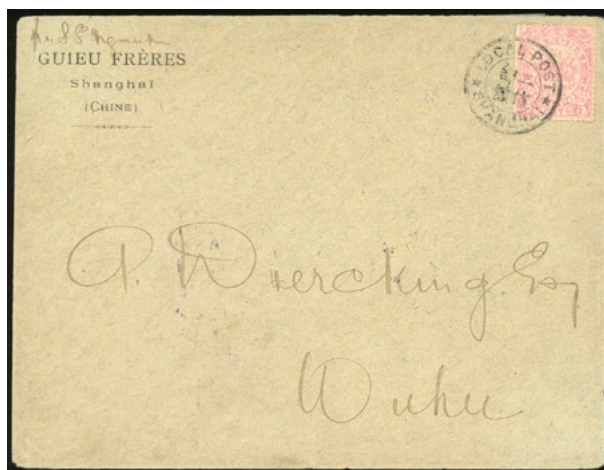 GUIEU FRÈRES
Shanghaï
(CHINE)
LOCAL POST
SHANGHAI
A. Diercking Esq
Wuhu